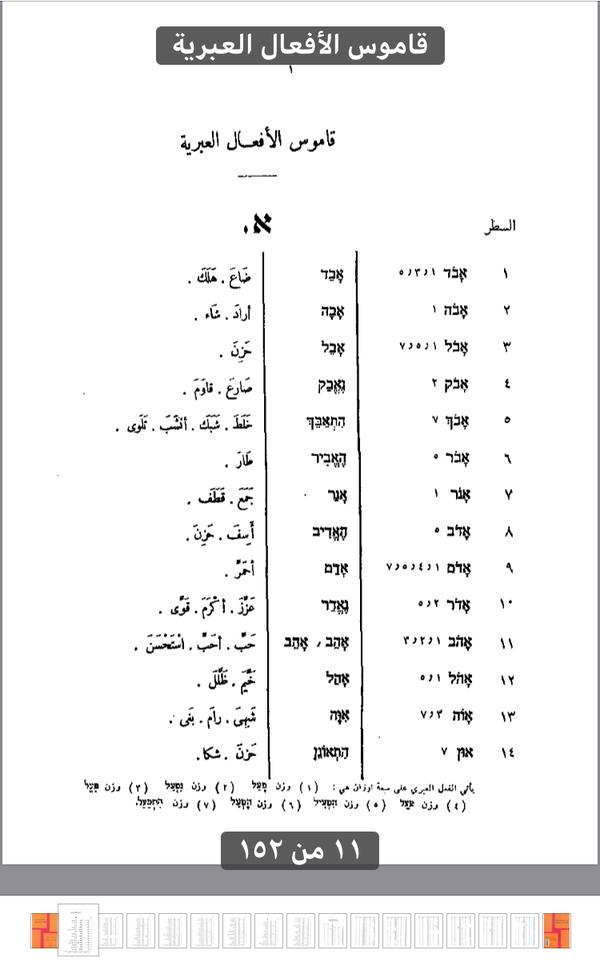 قاموس الأفعال العبرية
١
قاموس الأفعال العبرية
السطر א.
١ אָבֹד ١ر٣ر٥ אָבַד ضَاعَ . هَلَكَ .
٢ אָבֹה ١ אָבָה أرادَ . شَاء .
٣ אָבֹל ١ر٥ر٧ אָבַל حَزِنَ .
٤ אָבֹק ٢ נֶאֱבַק صَارَعَ . قاوَمَ .
٥ אָבֹךְ ٧ הִתְאַבֵּךְ خَلَطَ . شَبَكَ . أنْشَبَ . تَلَوى .
٦ אָבֹר ٥ הֶאֱבִיר طَارَ .
٧ אָגֹר ١ אָגַר جَمَعَ . قَطَفَ .
٨ אָדֹב ٥ הֶאֱדִיב أَسِفَ . حَزِنَ .
٩ אָדֹם ١ر٤ر٥ر٧ אָדַם أحْمَرَّ .
١٠ אָדֹר ٢ر٥ נֶאֱדַר عَزَّزَ . أكْرَمَ . قَوَّى .
١١ אָהֹב ١ر٢ر٣ אָהַב , אָהֵב حَبَّ . أحَبَّ . اسْتَحْسَنَ .
١٢ אָהֹל ١ر٥ אָהַל خَيَّمَ . ظَلَّلَ .
١٣ אָוֹה ٣ر٧ אִוָּה شَهِىَ . رامَ . بَغى .
١٤ אוּן ٧ הִתְאוֹנֵן حَزِنَ . شكا.
يأتي الفعل العبري على سبعة اوزان هي : (١) وزن פָּעַל (٢) وزن נִפְעַל (٣) وزن פִּעֵל
(٤) وزن פֻּעַל (٥) وزن הִפְעִיל (٦) وزن הָפְעַל (٧) وزن הִתְפַּעֵל.
١١ من ١٥٢